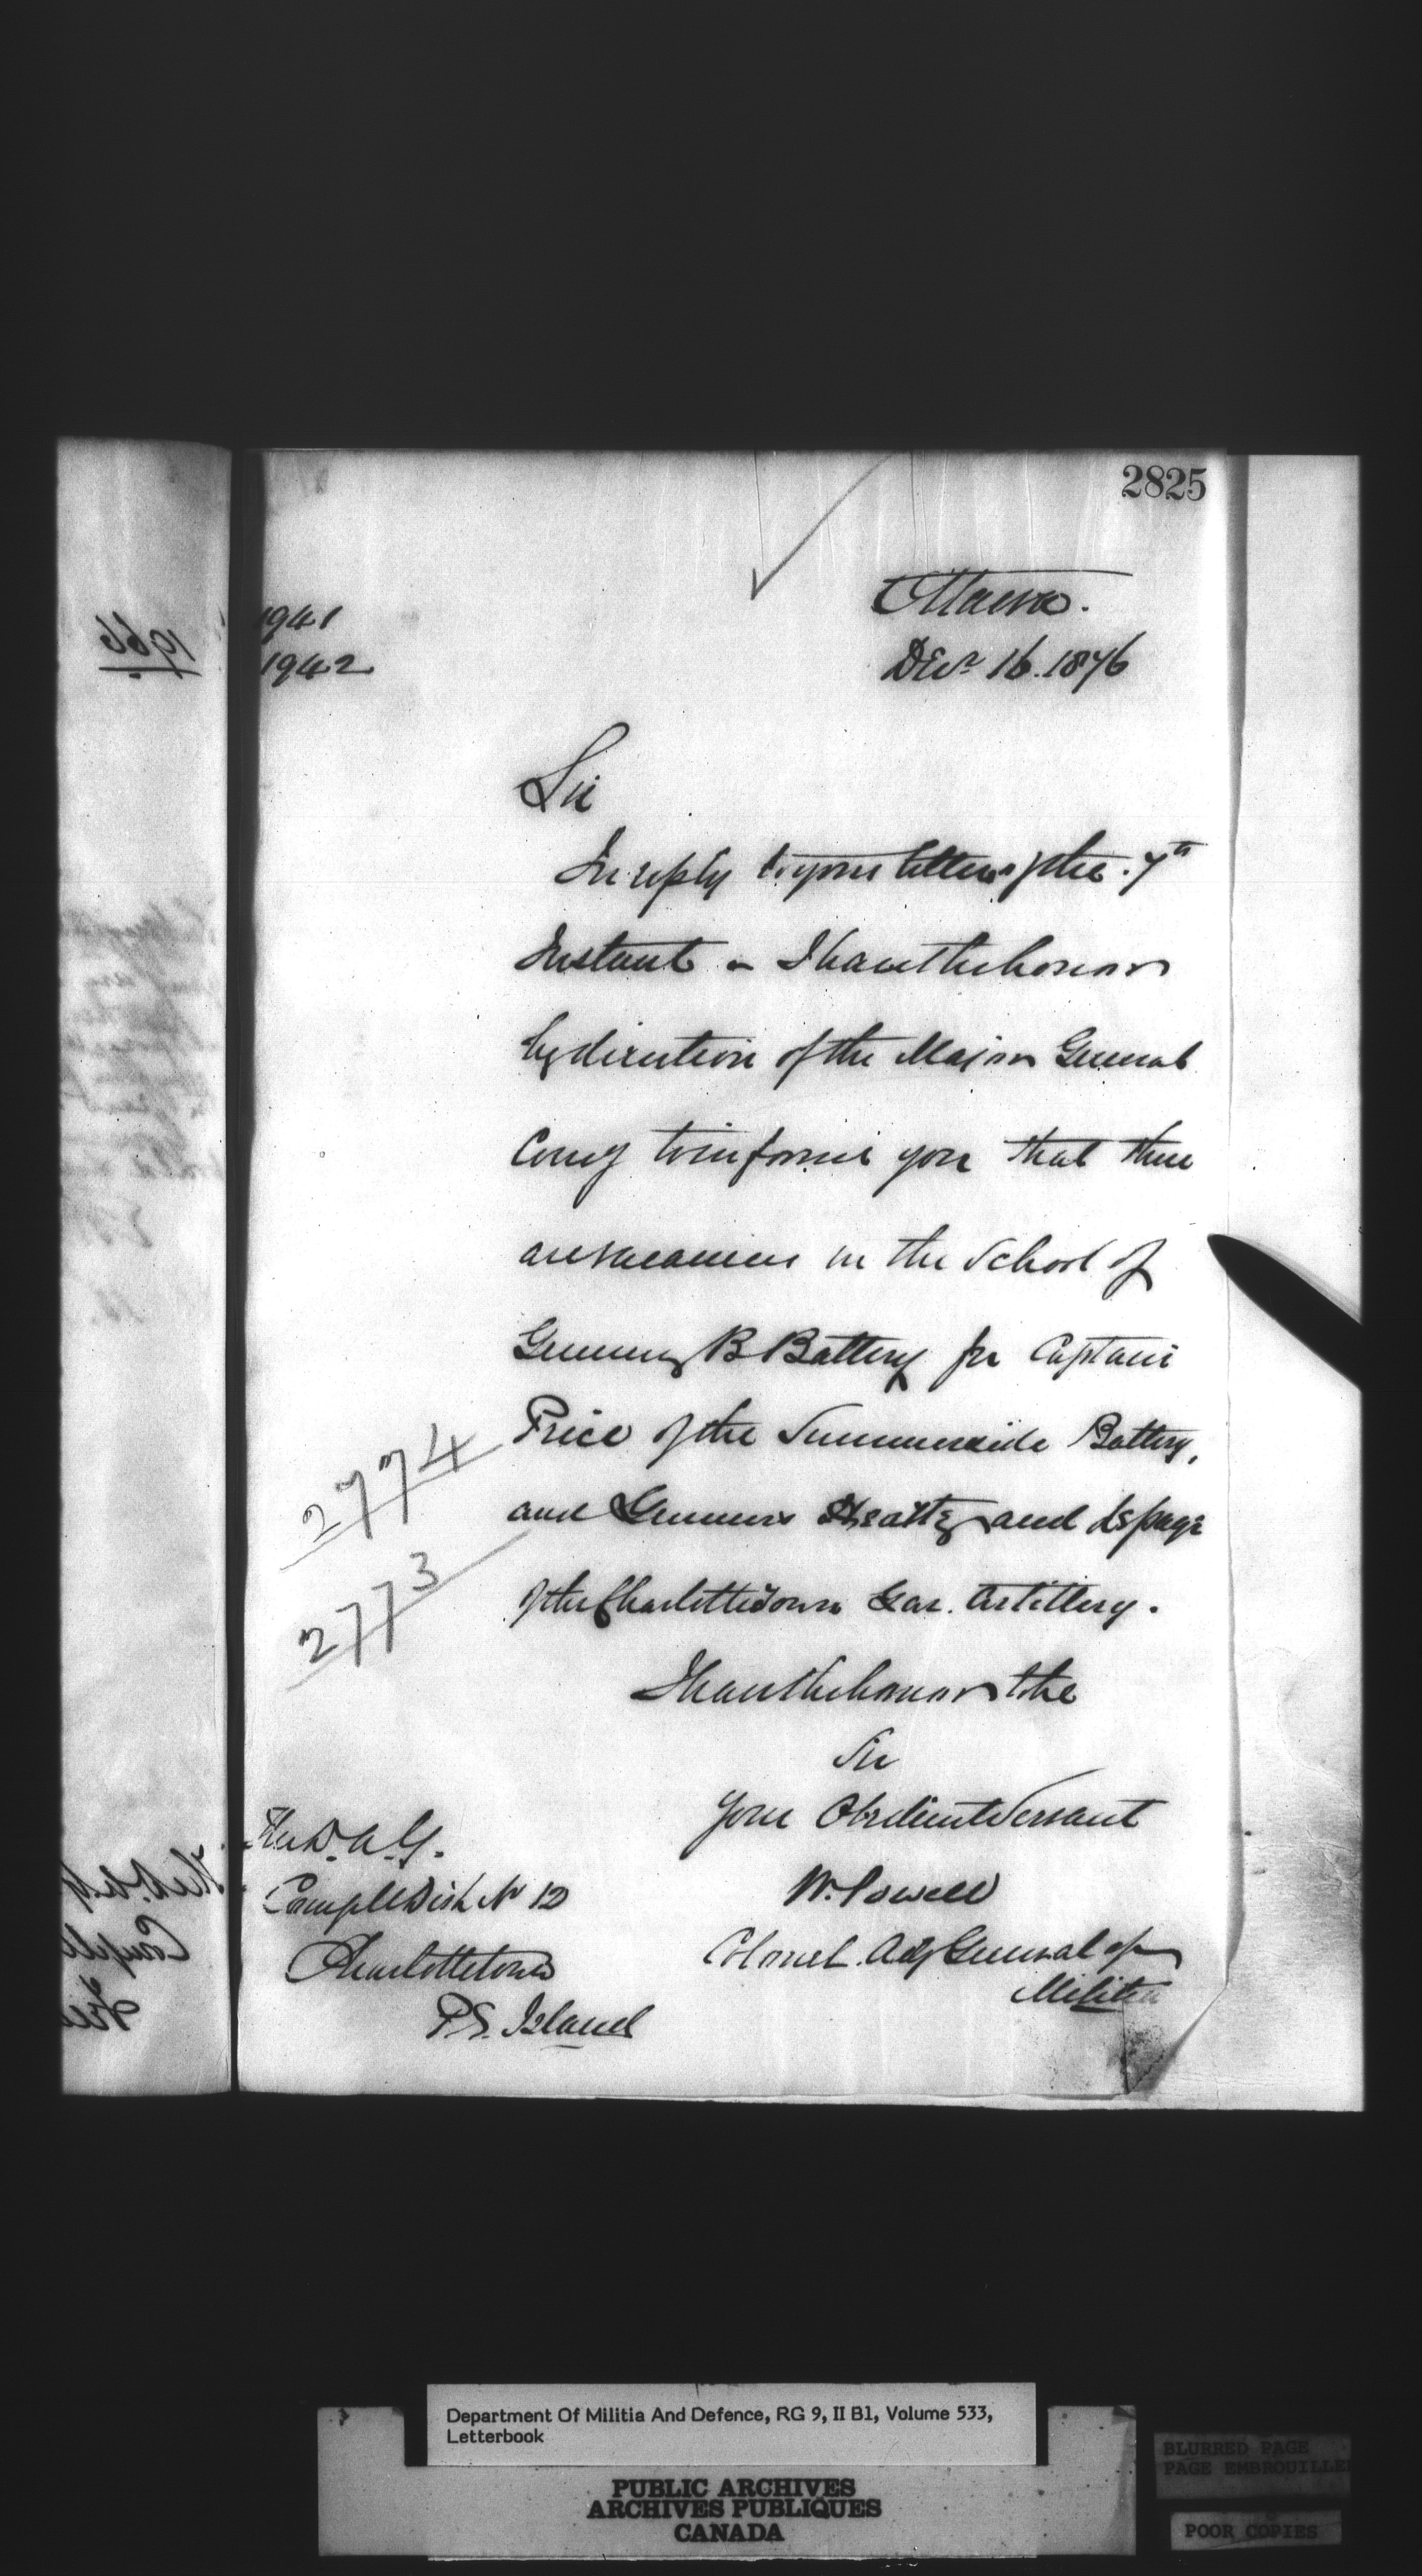 2825
1941
1942
Ottawa.
Decr 16. 1876
Sir
In reply to your letter of the 7th
Instant - I have the honor
by direction of the Major General
Comg to inform you that there
are vacancies in the School of
Gunnery B Battery for Captain
Price of the Summerside Battery,
2774
and Gunners and
2773
of the Charlottetown Gar. Artillery.
I have the honor to be
Sir
Your Obedient Servant
W. Powell
Colonel. Adj General of
Militia
The D. A. G.
Comg Mil Dist No 12
Charlottetown
P.E. Island
1966
Department Of Militia And Defence, RG 9, II B1, Volume 533,
Letterbook
PUBLIC ARCHIVES
ARCHIVES PUBLIQUES
CANADA
BLURRED PAGE
PAGE EMBROUILLE
POOR COPIES